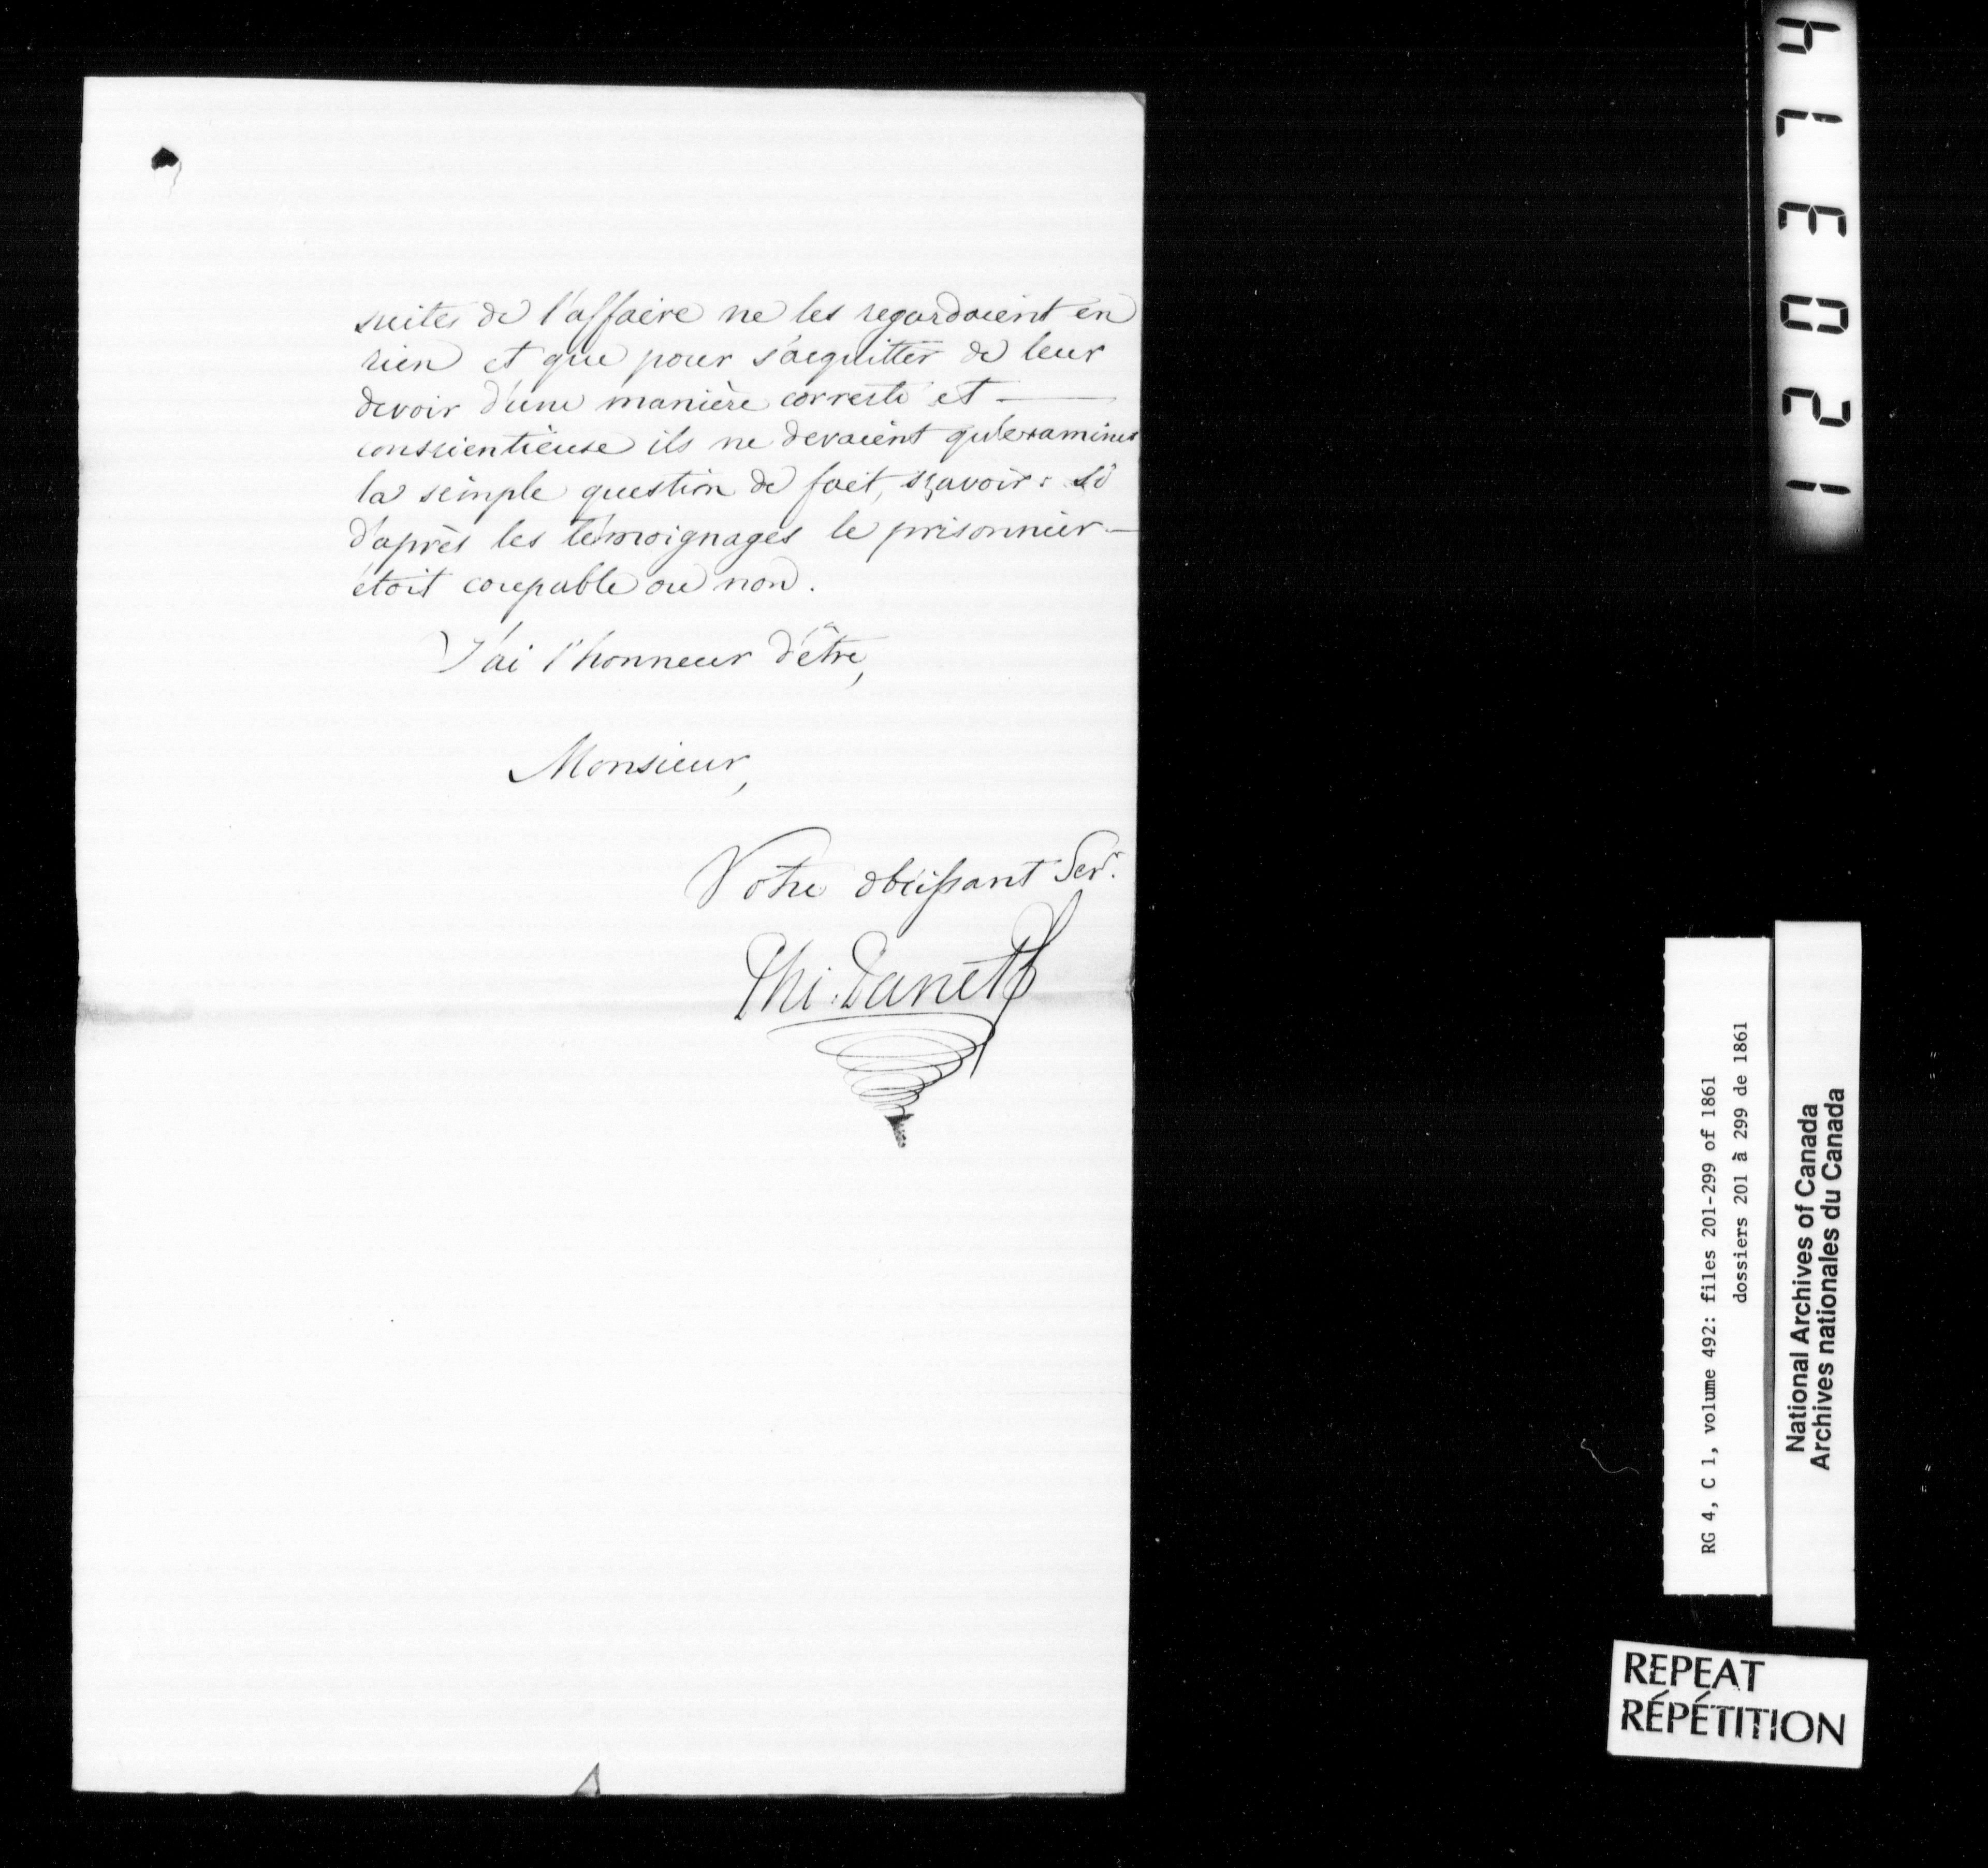 suites de l'affaire ne les regardoient en
rien et que pour s'acquitter de leur
devoir d'une manière correcte et —
conscientieuse ils ne devaient qu'examiner
la simple question de fait, sçavoir: si
d'après les témoignages le prisonnier —
étoit coupable ou non.
J'ai l'honneur d'être,
Monsieur,
Votre obéissant Serr.
473021
RG 4, C 1, volume 492: files 201-299 of 1861
dossiers 201 à 299 de 1861
National Archives of Canada
Archives nationales du Canada
REPEAT
RÉPÉTITION